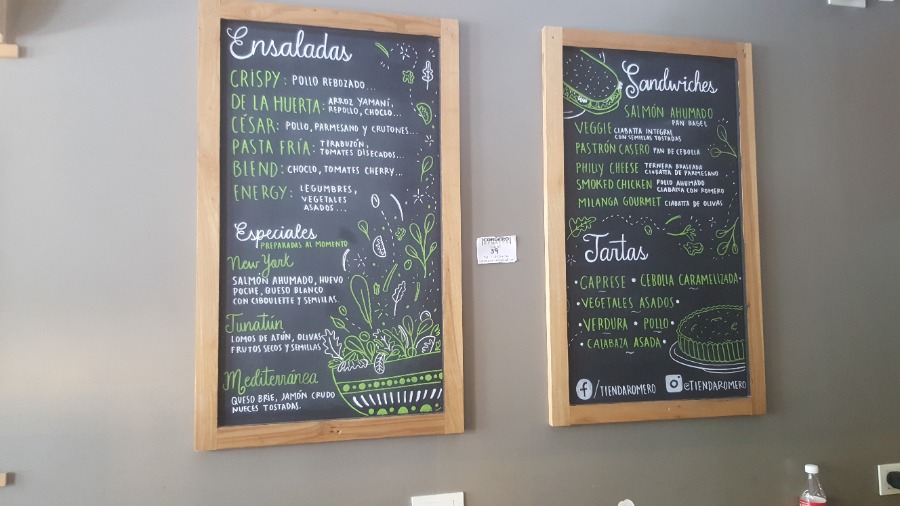 Ensaladas
CRISPY: POLLO REBOZADO...
DE LA HUERTA: ARROZ YAMANÍ,
REPOLLO, CHOCLO...
CÉSAR: POLLO, PARMESANO Y CRUTONES...
PASTA FRÍA: TIRABUZÓN,
TOMATES DISECADOS...
BLEND: CHOCLO, TOMATES CHERRY...
ENERGY: LEGUMBRES,
VEGETALES
ASADOS...
Especiales
PREPARADAS AL MOMENTO
New York
SALMÓN AHUMADO, HUEVO
POCHE, QUESO BLANCO
CON CIBOULETTE Y SEMILLAS.
Tunatún
LOMOS DE ATÚN, OLIVAS
FRUTOS SECOS Y SEMILLAS
Mediterránea
QUESO BRIE, JAMÓN CRUDO
NUECES TOSTADAS.
39
Sandwiches
SALMÓN AHUMADO
PAN BAGEL
VEGGIE CIABATTA INTEGRAL
CON SEMILLAS TOSTADAS
PASTRÓN CASERO PAN DE CEBOLLA
PHILLY CHEESE TERNERA BRASEADA
CIABATTA DE PARMESANO
SMOKED CHICKEN POLLO AHUMADO
CIABATTA CON ROMERO
MILANGA GOURMET CIABATTA DE OLIVAS
Tartas
• CAPRESE • CEBOLLA CARAMELIZADA •
• VEGETALES ASADOS •
• VERDURA • POLLO •
• CALABAZA ASADA •
f /TIENDAROMERO @TIENDAROMERO